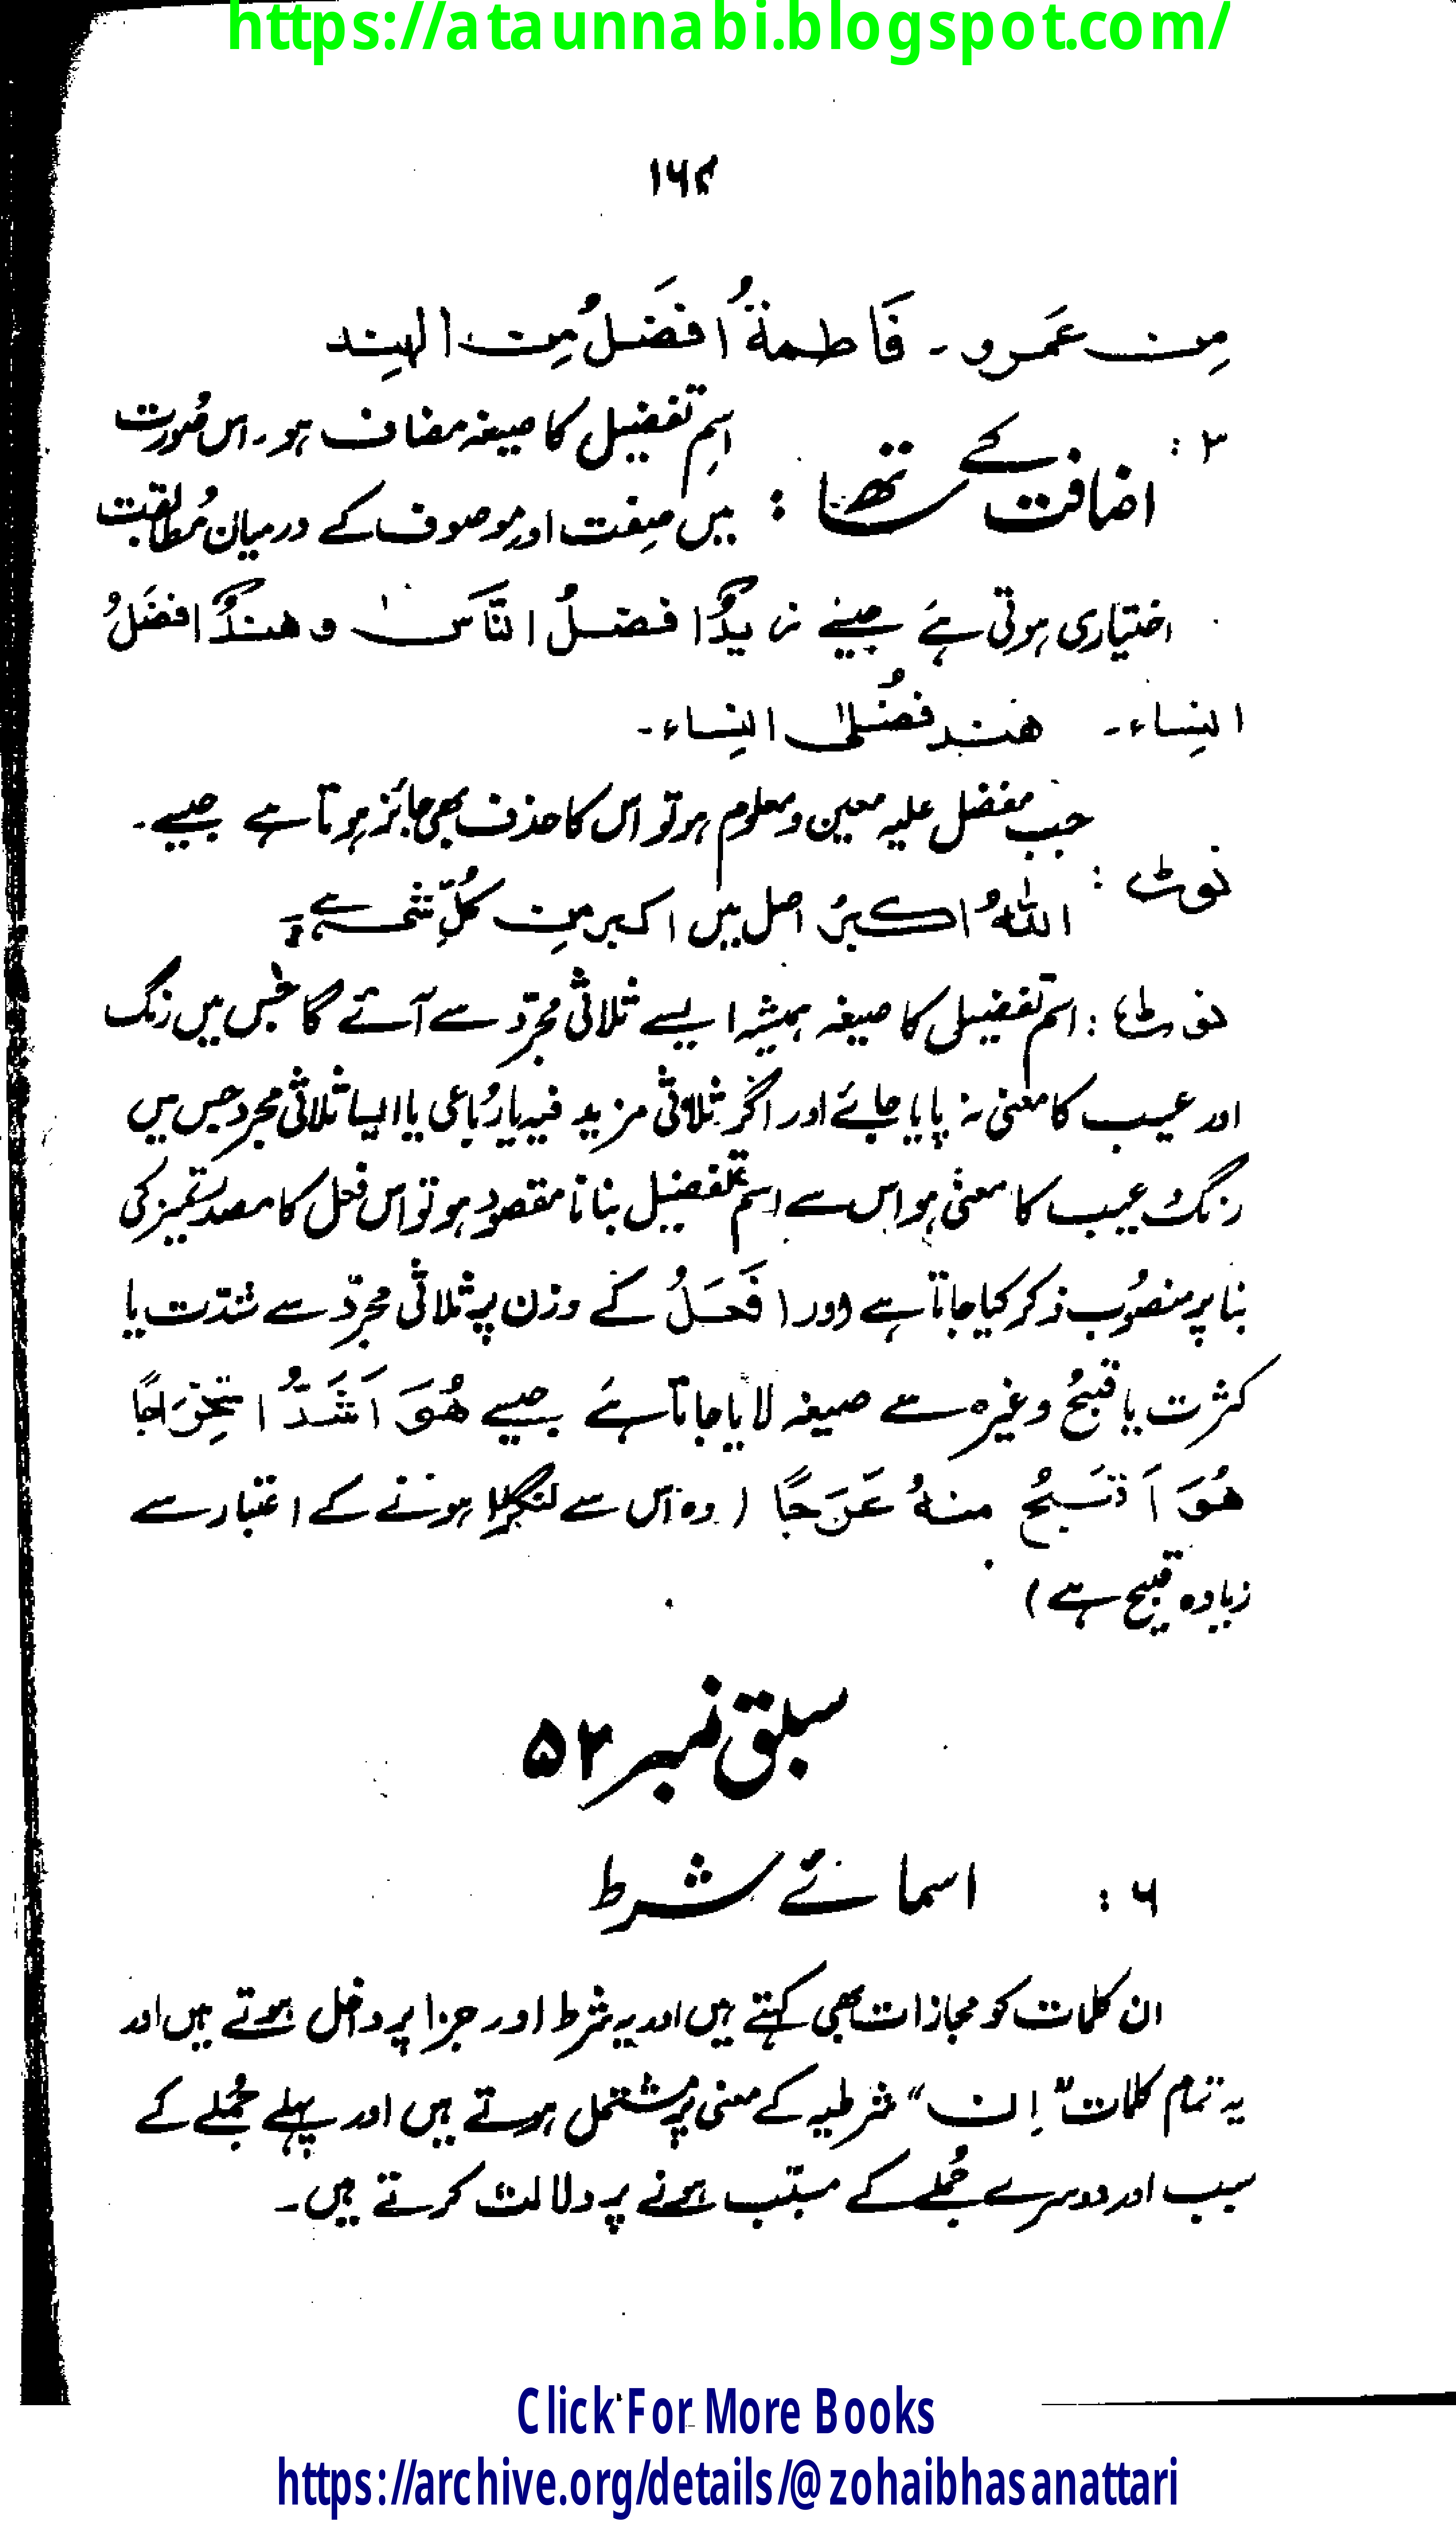 https://ataunnabi.blogspot.com/
۱۶۴
مِن عَمَرو۔ فَاطمةُ افضَلُ مِن الہِند
۳: اضافت کے ساتھ: اسِم تفضیل کا صیغہ مضاف ہو۔ اس صُورت
میں صِفت اور موصوف کے درمیان مُطابقت
اختیاری ہوتی ہے جیسے زیدٌ افضلُ النَّاس و ھندٌ افضَلُ
النِساء۔ ھند فُضلٰی النِساء۔
جب مفضل علیہ معین و معلوم ہو تو اس کا حذف بھی جائز ہوتا ہے جیسے۔
نوٹ: اللہُ اکبرُ اصل میں اکبر مِن کُلِّ شئ ہے۔
نوٹ: اسم تفضیل کا صیغہ ہمیشہ ایسے ثلاثی مجرّد سے آئے گا جس میں رنگ
اور عیب کا معنٰی نہ پایا جائے اور اگر ثلاثی مزید فیہ یا رُباعی یا ایسا ثلاثی مجرد جس میں
رنگ عیب کا معنٰی ہو اس سے اسم تفضیل بنانا مقصود ہو تو اس فعل کا مصدر تمیز کی
بنا پر منصُوب ذکر کیا جاتا ہے اور افَعَلُ کے وزن پر ثلاثی مجرّد سے شدّت یا
کثرت یا قبُح وغیرہ سے صیغہ لایا جاتا ہے جیسے ھُوَ اَشَدُّ استِخرَاجًا
ھُوَ اَقبَحُ منہُ عَرَجًا (وہ اس سے لنگڑا ہونے کے اعتبار سے
زیادہ قبیح ہے)
سبق نمبر ۵۲
۶: اسمائے شرط
ان کلمات کو مجازات بھی کہتے ہیں اور یہ شرط اور جزا پر داخل ہوتے ہیں اور
یہ تمام کلمات "اِن" شرطیہ کے معنی پر مشتمل ہوتے ہیں اور پہلے جُملے کے
سبب اور دوسرے جُملے کے مسبّب ہونے پر دلالت کرتے ہیں۔
Click For More Books
https://archive.org/details/@zohaibhasanattari